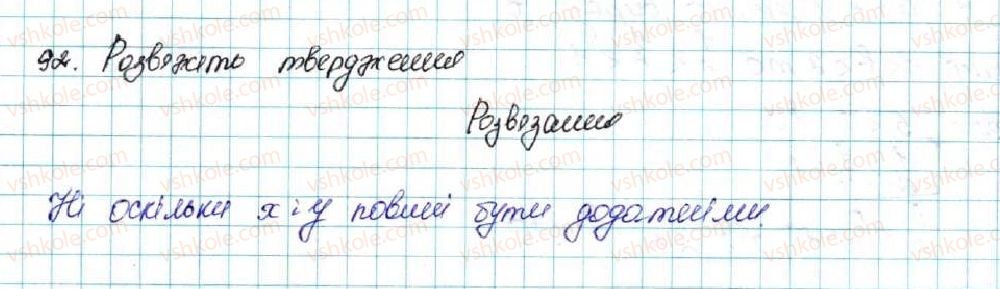 92. Розвяжіть твердження
Розвязання
Ні оскільки x і y повині бути додатніми.